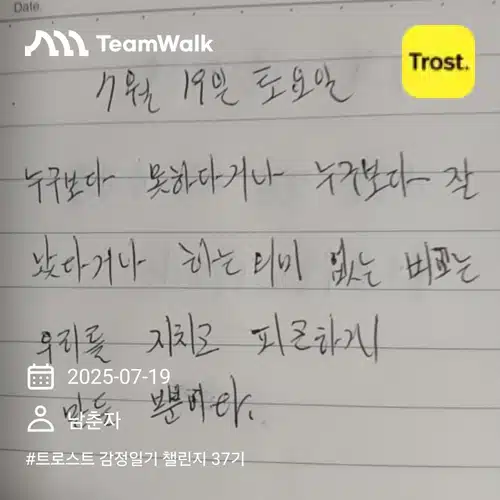 Date.
TeamWalk
Trost.
7월 19일 토요일
누구보다 못하다거나 누구보다 잘
났다거나 하는 의미 없는 비교는
우리를 지치고 피곤하게
만들 뿐이다.
2025-07-19
남춘자
#트로스트 감정일기 챌린지 37기